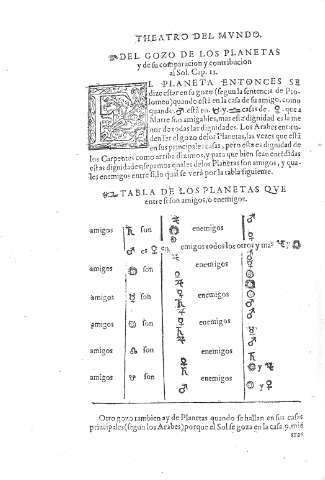 THEATRO DEL MVNDO,
DEL GOZO DE LOS PLANETAS
y de su comparacion y contribucion
al Sol. Cap. 11.
EL PLANETA ENTONCES SE
dize estar en su gozo (segun la sentencia de Pto-
lomeu) quando està en la casa de su amigo, como
quando ♂ está en ♉ y ♎ casas de ♀ que a
Marte son amigables, mas este dignidad es la me
nor de todas las dignidades. Los Arabes entien-
den ser el gozo del Planetas, las vezes que está
en sus principales casas, pero esta es dignidad de
los Carpentes como arriba diximos, y para que bien sean entēdidas
estas dignidades, sepamos quales de los Planetas son amigos, y qua-
les enemigos entre si, lo qual se verà por la tabla siguiente.
TABLA DE LOS PLANETAS QVE
entre si son amigos, o enemigos.
amigos ♄ son ♃ enemigos ♂
♂ es ♀ enemigo todos los otros y mas ♃ y ☉
amigos ☉ son enemigos
amigos ☿ son enemigos
amigos ☉ son enemigos
amigos ☊ son enemigos
amigos ☋ son enemigos ☉ y ♀
Otro gozo tambien ay de Planetas quando se hallan en sus casas
principales (segun los Arabes) porque el Sol se goza en la casa 9. mie